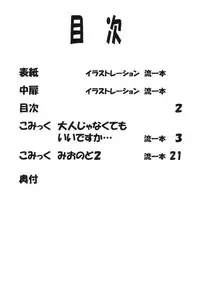 目次
表紙 イラストレーション 流一本
中扉 イラストレーション 流一本
目次 2
こみっく 大人じゃなくても
いいですか… 流一本 3
こみっく みおのど2 流一本 21
奥付